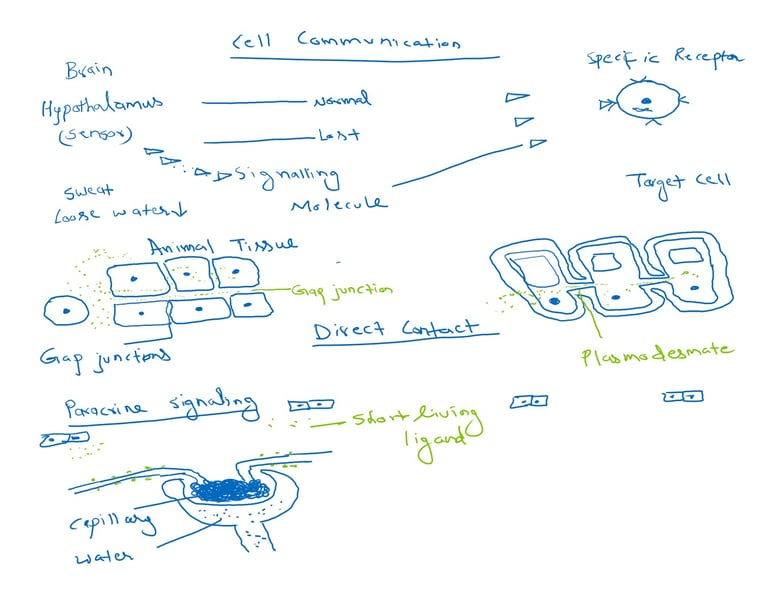 Cell Communication
Specific Receptor
Brain
Hypothalamus
Normal
(Sensor)
Lost
Signalling
Molecule
Target Cell
Sweat
Loose water↓
Animal Tissue
Gap junction
Direct Contact
Gap junctions
Plasmodesmate
Paracrine signaling
Short living
ligand
Capillary
water